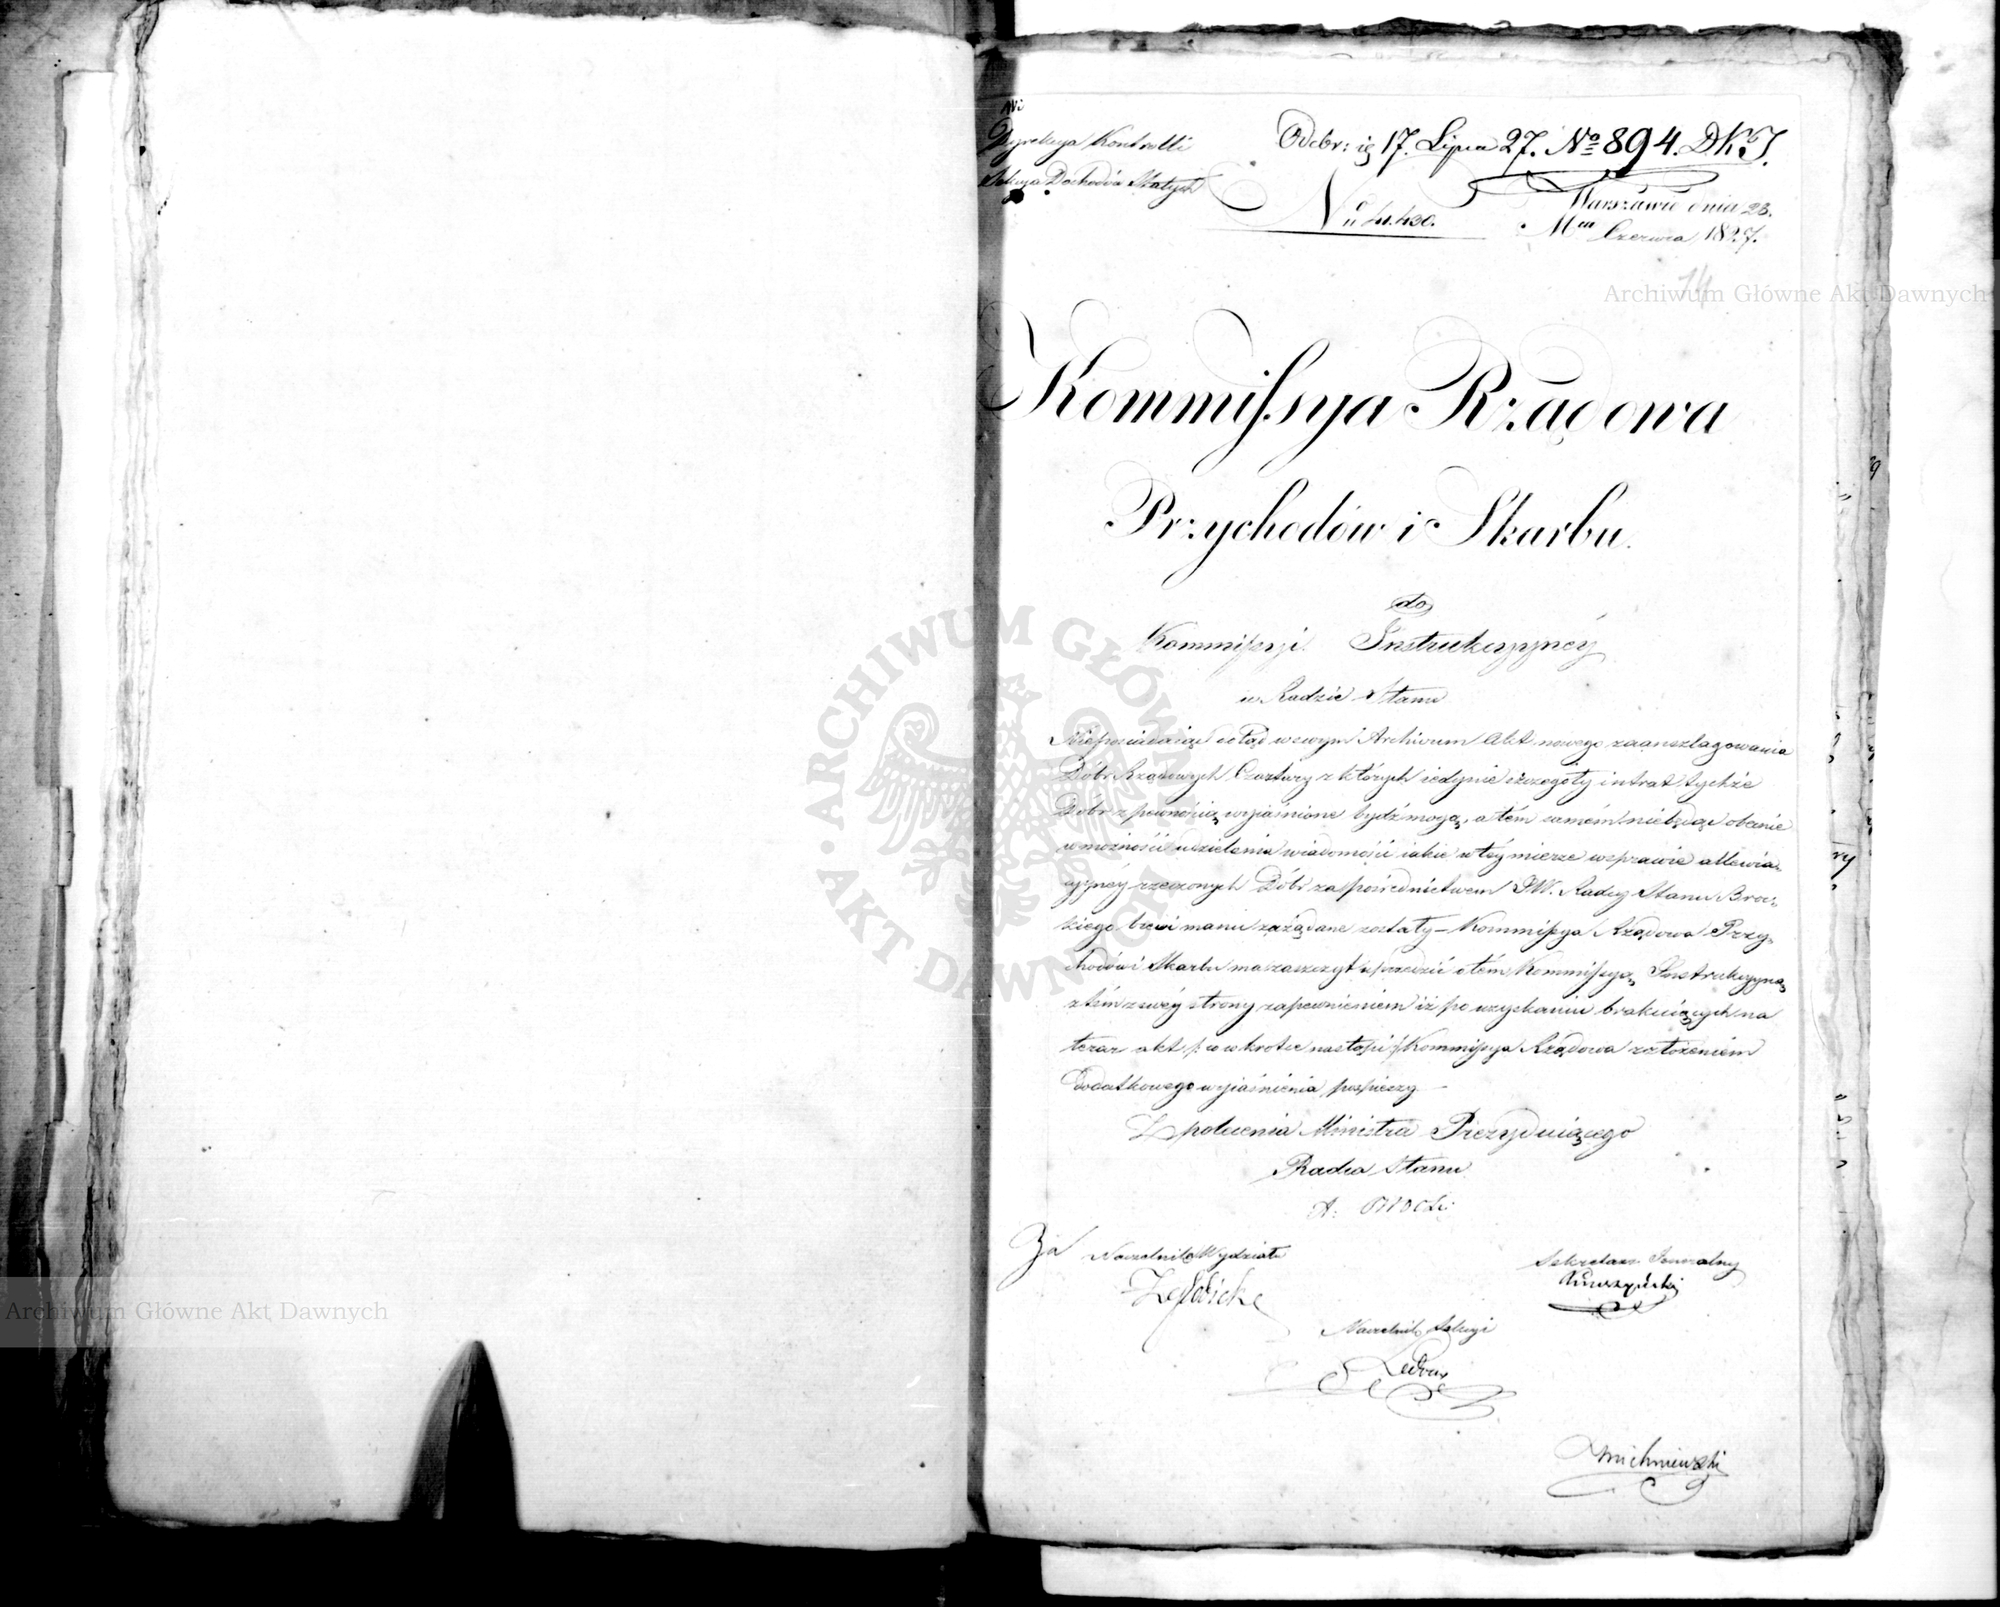 Dyrekcya Kontrolli
Sekcya Dochodów Stałych
Odebr: ię 17. Lipca 27. No 894. D.K.J.
No 41.430.
Warszawie dnia 23.
Mca Czerwca 1827.
14
Kommissya Rządowa
Przychodów i Skarbu.
do
Kommissyi Instrukcyyney
w Radzie Stanu
Nieposiadaiąc dotąd wswym Archiwum Akt nowego zaanszlagowania
Dóbr Rządowych z których iedynie szczegóły intrat tychże
Dóbr z pewnością wyiaśnione bydź mogą, a tém samém niebędąc obecnie
w możności udzielenia wiadomości iakie w tey mierze wsprawie allewia-
cyyney rzeczonych Dóbr za pośrednictwem JW. Radcy Stanu Broc-
kiego brevi manu zażądane zostały – Kommissya Rządowa Przy-
chodów i Skarbu ma zaszczyt uprzedzić o tém Kommissyą Instrukcyyną
z tém zswéy strony zapewnieniem iż po uzyskaniu brakuiących na
teraz akt /: co wkrótce nastąpi :/ Kommissya Rządowa złożeniem
dodatkowego wyiaśnienia pospieszy –
Z polecenia Ministra Prezyduiącego
Radca Stanu
Za Naczelnik Wydziału
Sekretarz Jeneralny
Naczelnik Sekcyi
Żmichniewski
Archiwum Główne Akt Dawnych
Archiwum Główne Akt Dawnych
ARCHIWUM GŁÓWNE AKT DAWNYCH